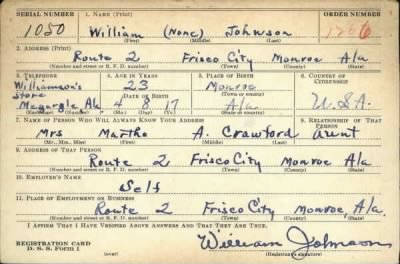 SERIAL NUMBER 1. NAME (Print) ORDER NUMBER
1050 William (None) Johnson
(First) (Middle) (Last)
2. ADDRESS (Print)
Route 2 Frisco City Monroe Ala
(Number and street or R. F. D. number) (Town) (County) (State)
3. TELEPHONE 4. AGE IN YEARS 5. PLACE OF BIRTH 6. COUNTRY OF CITIZENSHIP
Williamson's 23 Monroe
Store DATE OF BIRTH (Town or county)
Megargle Ala 4 8 17 Ala U.S.A.
(Mo.) (Day) (Yr.) (State or country)
7. NAME OF PERSON WHO WILL ALWAYS KNOW YOUR ADDRESS 8. RELATIONSHIP OF THAT PERSON
Mrs Martha A. Crawford aunt
(Mr., Mrs., Miss) (First) (Middle) (Last)
9. ADDRESS OF THAT PERSON
Route 2 Frisco City Monroe Ala
(Number and street or R. F. D. number) (Town) (County) (State)
10. EMPLOYER'S NAME
Self
11. PLACE OF EMPLOYMENT OR BUSINESS
Route 2 Frisco City Monroe, Ala.
(Number and street or R. F. D. number) (Town) (County) (State)
I AFFIRM THAT I HAVE VERIFIED ABOVE ANSWERS AND THAT THEY ARE TRUE.
REGISTRATION CARD William Johnson
D. S. S. Form 1 (over) (Registrant's signature)